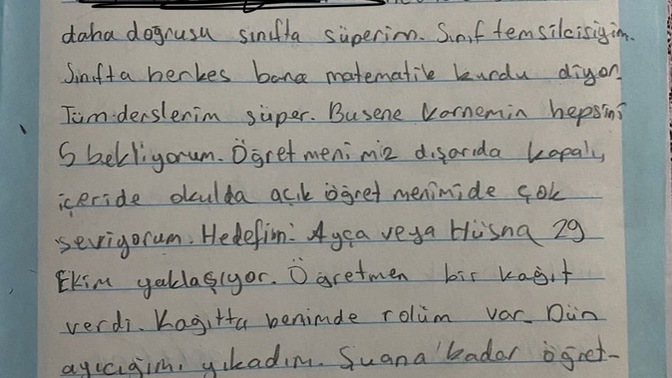 daha doğrusu sınıfta süperim. Sınıf temsilcisiyim.
Sınıfta herkes bana matematik kurdu diyor.
Tüm derslerim süper. Busene karnemin hepsini
5 bekliyorum. Öğretmenimiz dışarıda kapalı,
içeride okulda açık öğretmenimide çok
seviyorum. Hedefim: Ayça veya Hüsna 29
Ekim yaklaşıyor. Öğretmen bir kağıt
verdi. Kağıtta benimde rolüm var. Dün
ayıcığımı yıkadım. Şuana kadar öğret-